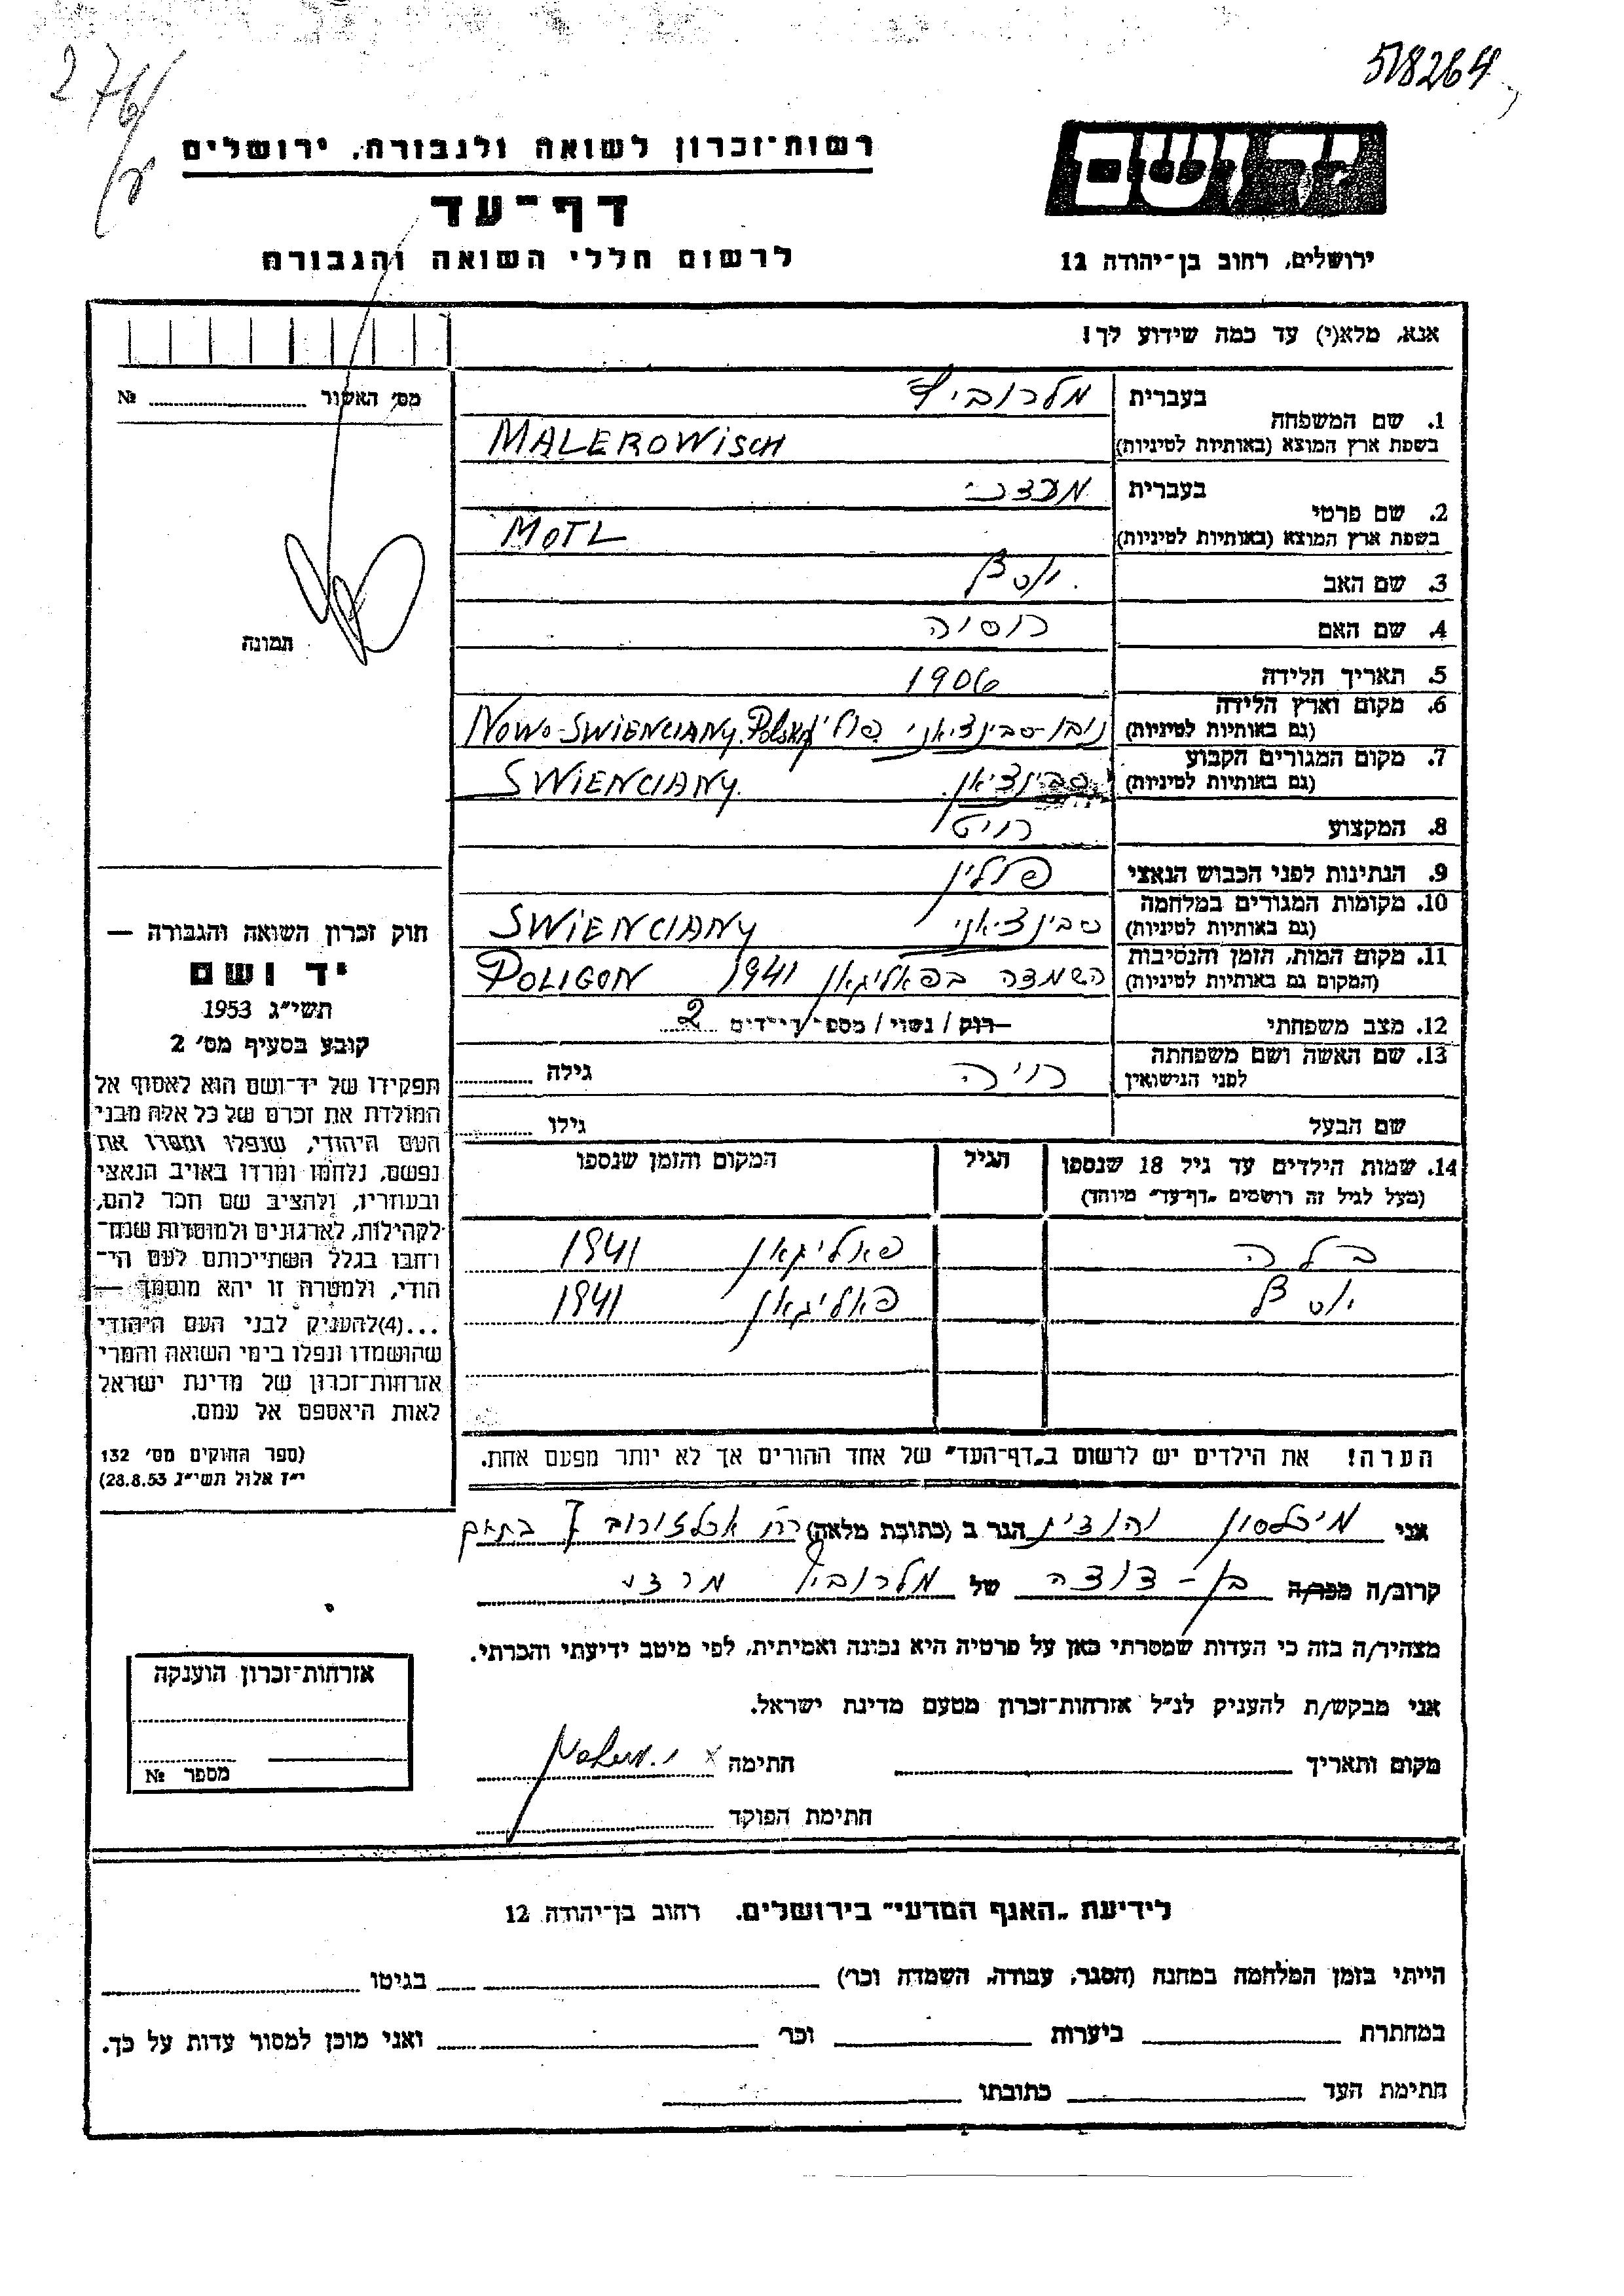 518264
276/
רשות־זכרון לשואה ולגבורה, ירושלים
דף־עד
לרשום חללי השואה והגבורה
יד ושם
ירושלים, רחוב בן־יהודה 12
אנא, מלא(י) עד כמה שידוע לך!
מס׳ האשור № ........
תמונה
1. שם המשפחה
בעברית מלרוביץ
בשפת ארץ המוצא (באותיות לטיניות) MALEROWISCH
2. שם פרטי
בעברית
בשפת ארץ המוצא (באותיות לטיניות) MOTL
3. שם האב יוסף
4. שם האם
5. תאריך הלידה 1906
6. מקום וארץ הלידה
(גם באותיות לטיניות) נובו-סבינציאני פולין NOWO-SWIENCIANY. Polska
7. מקום המגורים הקבוע
(גם באותיות לטיניות) סבינציאן. SWIENCIANY.
8. המקצוע
9. הנתינות לפני הכבוש הנאצי פולין
10. מקומות המגורים במלחמה
(גם באותיות לטיניות) סבינציאני SWIENCIANY
11. מקום המות, הזמן והנסיבות
(המקום גם באותיות לטיניות) השמדה בפאליגאן 1941 POLIGON
12. מצב משפחתי רוק / נשוי / מספר ילדים 2
13. שם האשה ושם משפחתה
לפני הנישואין גילה
שם הבעל גילו
14. שמות הילדים עד גיל 18 שנספו
(מעל לגיל זה רושמים „דף־עד״ מיוחד)
הגיל
המקום והזמן שנספו
בלה פאליגאן 1941
יוסף פאליגאן 1941
הערה! את הילדים יש לרשום ב„דף־העד״ של אחד ההורים אך לא יותר מפעם אחת.
חוק זכרון השואה והגבורה —
יד ושם
תשי״ג 1953
קובע בסעיף מס׳ 2
תפקידו של יד־ושם הוא לאסוף אל
המולדת את זכרם של כל אלה מבני
העם היהודי, שנפלו ומסרו את
נפשם, נלחמו ומרדו באויב הנאצי
ובעוזריו, ולהציב שם וזכר להם,
לקהילות, לארגונים ולמוסדות שנח־
רבו בגלל השתייכותם לעם הי־
הודי, ולמטרה זו יהא מוסמך —
...(4)להעניק לבני העם היהודי
שהושמדו ונפלו בימי השואה והמרי
אזרחות־זכרון של מדינת ישראל
לאות היאספם אל עמם.
(ספר החוקים מס׳ 132
י״ז אלול תשי״ג 28.8.53)
אני מיכלסון יהודית הגר ב (כתובת מלאה) 7 בת ים
קרוב/ה מכר/ה בן-דודה של מלרוביץ
מצהיר/ה בזה כי העדות שמסרתי כאן על פרטיה היא נכונה ואמיתית, לפי מיטב ידיעתי והכרתי.
אני מבקש/ת להעניק לנ״ל אזרחות־זכרון מטעם מדינת ישראל.
מקום ותאריך חתימה x
חתימת הפוקד
אזרחות־זכרון הוענקה
מספר №
לידיעת „האגף המדעי״ בירושלים. רחוב בן־יהודה 12
הייתי בזמן המלחמה במחנה (הסגר, עבודה, השמדה וכו׳) בגיטו
במחתרת ביערות וכו׳ ואני מוכן למסור עדות על כך.
חתימת העד כתובתו